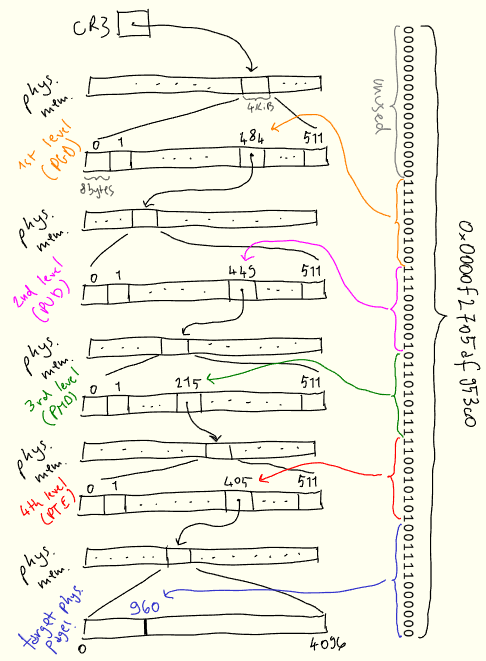 CR3
phys. mem.
4KiB
unused
0 1 484 511
1st level (PGD)
8bytes
phys. mem.
0 1 449 511
2nd level (PUD)
phys. mem.
0 1 215 511
3rd level (PMD)
phys. mem.
0 1 405 511
4th level (PTE)
phys. mem.
target phys. page:
960
0 4096
0000000000000000111100100111000001011010111110010101001111000000
0x0000f2705af953c0